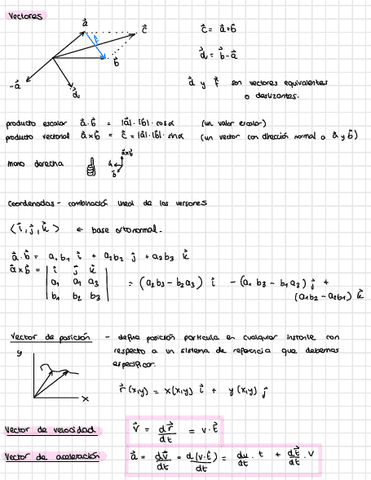 Vectores
a⃗
c⃗
b⃗
-a⃗
d⃗
c⃗ = a⃗+b⃗
d⃗ = b⃗-a⃗
d⃗ y f⃗ son vectores equivalentes
o deslizantes.
producto escalar a⃗·b⃗ = |a⃗|·|b⃗|·cosα (un valor escalar)
producto vectorial a⃗×b⃗ = c⃗ = |a⃗|·|b⃗|·sinα (un vector con dirección normal a a⃗ y b⃗)
mano derecha
a⃗×b⃗
b⃗
Coordenadas - combinación lineal de los versores
⟨i⃗, j⃗, k⃗⟩ ← base ortonormal.
a⃗·b⃗ = a₁b₁ i⃗ + a₂b₂ j⃗ + a₃b₃ k⃗
a⃗×b⃗ = | i⃗ j⃗ k⃗ |
| a₁ a₂ a₃ | = (a₂b₃ - b₂a₃) i⃗ - (a₁b₃ - b₁a₃) j⃗ +
| b₁ b₂ b₃ | (a₁b₂ - a₂b₁) k⃗
Vector de posición - define posición partícula en cualquier instante con
respecto a un sistema de referencia que debemos
especificar.
y
x
r⃗(x,y) = x(x,y) i⃗ + y(x,y) j⃗
Vector de velocidad v⃗ = dr⃗/dt = v·t⃗
Vector de aceleración a⃗ = dv⃗/dt = d(v·t⃗)/dt = dv/dt · t + dt⃗/dt · v